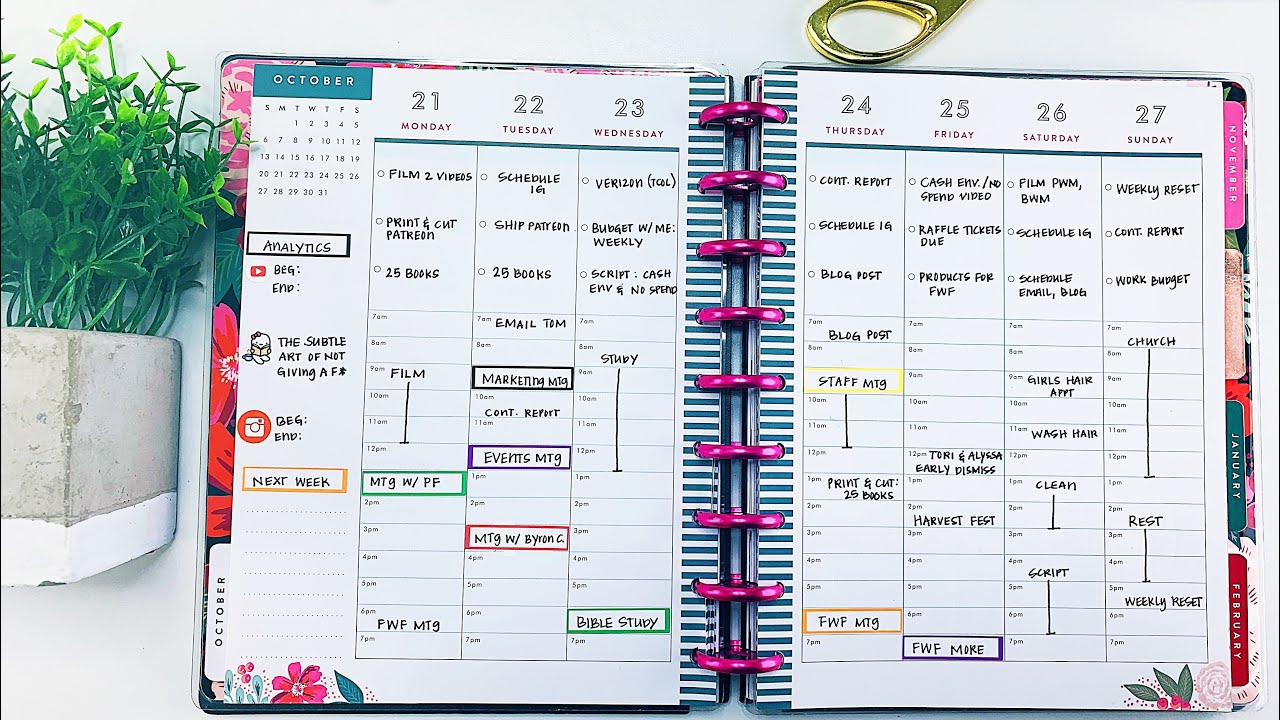 OCTOBER
T W T
14 15 16 17 18 19
20 21 22 23 24 25 26
27 28 29 30 31
ANALYTICS
BEG:
END:
THE SUBTLE
ART OF NOT
GIVING A F#
BEG:
END:
NEXT WEEK
OCTOBER
21
MONDAY
FILM 2 VIDEOS
PRINT & CUT
PATREON
25 BOOKS
7am
8am
9am
FILM
10am
11am
12pm
MTG W/ FF
2pm
3pm
4pm
5pm
6pm
FWF MTG
7pm
22
TUESDAY
SCHEDULE
IG
SHIP PATREON
25 BOOKS
7am
EMAIL TOM
8am
MARKETING MTG
10am
CONT. REPORT
11am
EVENTS MTG
1pm
2pm
MTG W/ BYRON C.
4pm
5pm
6pm
7pm
23
WEDNESDAY
VERIZON (TGAL)
BUDGET W/ ME:
WEEKLY
SCRIPT: CASH
ENV & NO SPEND
7am
8am
STUDY
9am
10am
11am
12pm
1pm
2pm
3pm
4pm
5pm
BIBLE STUDY
7pm
24
CONT. REPORT
SCHEDULE IG
BLOG POST
7am
BLOG POST
8am
STAFF MTG
10am
11am
12pm
1pm
PRINT & CUT:
25 BOOKS
2pm
3pm
4pm
5pm
FWF MTG
7pm
25
FRIDAY
CASH ENV./NO
SPEND VIDEO
RAFFLE TICKETS
DUE
PRODUCTS FOR
FWF
7am
8am
9am
10am
11am
12pm
TORI & ALYSSA
EARLY DISMISS
1pm
2pm
HARVEST FEST
3pm
4pm
5pm
6pm
FWF MORE
26
FILM BWM,
BWM
SCHEDULE IG
SCHEDULE
EMAIL BLOG
7am
8am
9am
GIRLS HAIR
APPT
10am
11am
WASH HAIR
12pm
1pm
CLEAN
2pm
3pm
4pm
5pm
6pm
7pm
WEEKLY RESET
CONT. REPORT
WORK BUDGET
CHURCH
REST
NOVEMBER
JANUARY
FEBRUARY